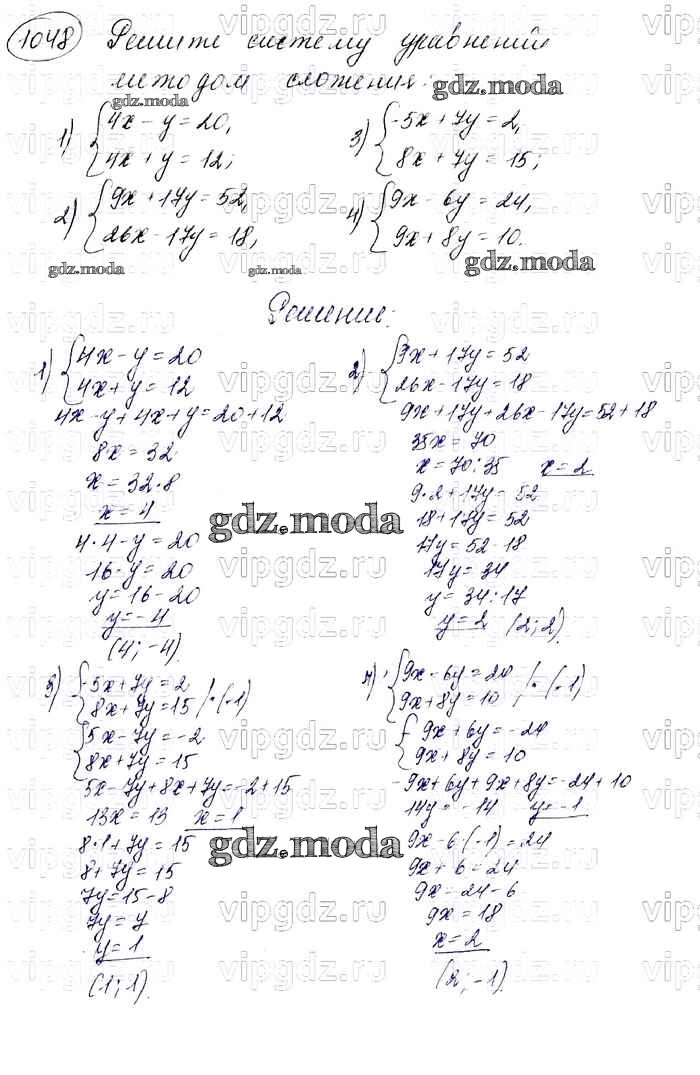 1048 Решите систему уравнений
методом сложения:
1) {4x - y = 20,
4x + y = 12;
2) {9x + 17y = 52,
26x - 17y = 18,
3) {-5x + 7y = 2,
8x + 7y = 15;
4) {9x - 6y = 24,
9x + 8y = 10.
Решение:
1) {4x - y = 20
4x + y = 12
4x - y + 4x + y = 20 + 12
8x = 32
x = 32 · 8
x = 4
4 · 4 - y = 20
16 - y = 20
y = 16 - 20
y = -4
(4; -4).
2) {9x + 17y = 52
26x - 17y = 18
9x + 17y + 26x - 17y = 52 + 18
35x = 70
x = 70 : 35 x = 2
9 · 2 + 17y = 52
18 + 17y = 52
17y = 52 - 18
17y = 34
y = 34 : 17
y = 2 (2; 2).
3) {-5x + 7y = 2
8x + 7y = 15 / · (-1)
{5x - 7y = -2
8x + 7y = 15
5x - 7y + 8x + 7y = -2 + 15
13x = 13 x = 1
8 · 1 + 7y = 15
8 + 7y = 15
7y = 15 - 8
7y = 7
y = 1
(1; 1).
4) {9x - 6y = 24 / · (-1)
9x + 8y = 10 ;
{-9x + 6y = -24
9x + 8y = 10
-9x + 6y + 9x + 8y = -24 + 10
14y = -14 y = -1
9x - 6 · (-1) = 24
9x + 6 = 24
9x = 24 - 6
9x = 18
x = 2
(2; -1).
gdz.moda
vipgdz.ru